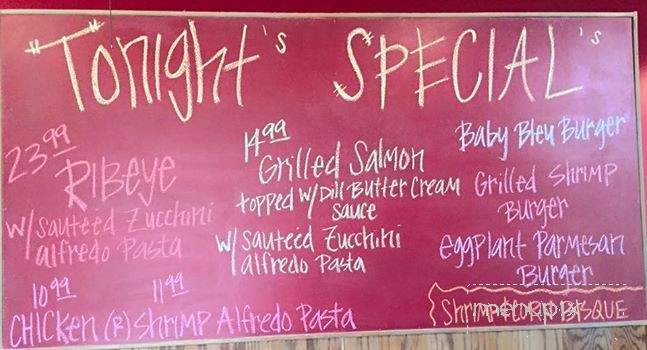 "Tonight's SPECIAL's
23.99
Ribeye
w/ sautéed Zucchini
alfredo Pasta
14.99
Grilled Salmon
topped w/ Dill-Butter Cream
sauce
w/ sautéed Zucchini
alfredo Pasta
Baby Bleu Burger
Grilled Shrimp
Burger
eggplant Parmesan
Burger
10.99 11.99
CHICKen (R) SHRIMP Alfredo Pasta
Shrimp & CORN BISQUE